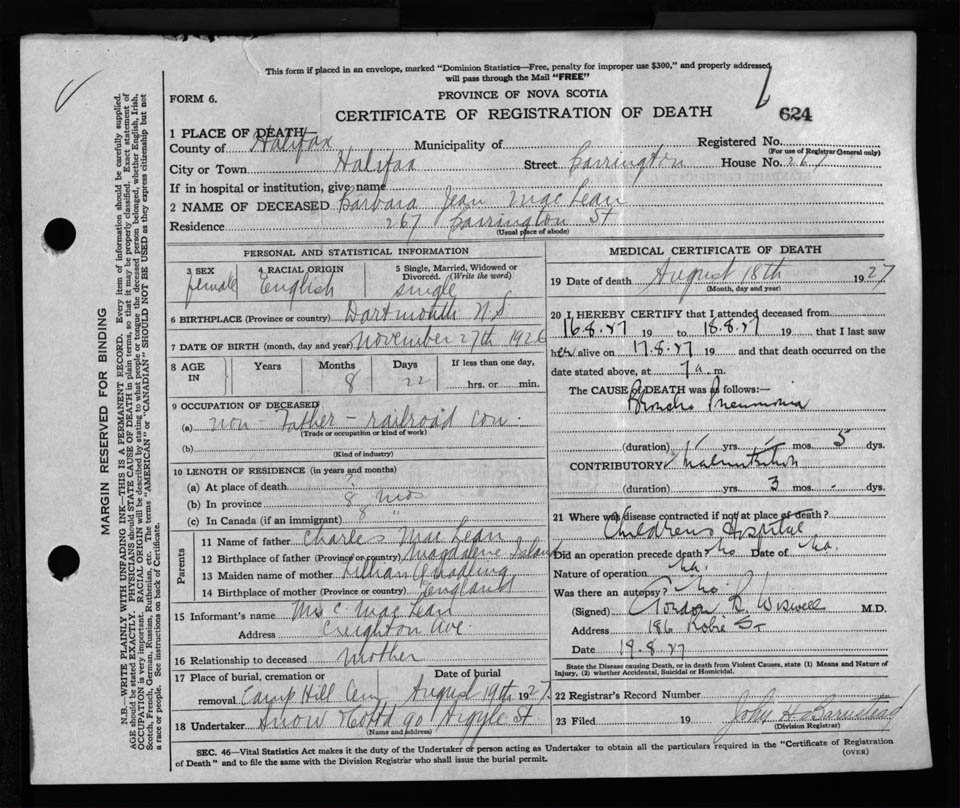 This form if placed in an envelope, marked "Dominion Statistics—Free, penalty for improper use $300," and properly addressed
will pass through the Mail "FREE"
FORM 6.
PROVINCE OF NOVA SCOTIA
CERTIFICATE OF REGISTRATION OF DEATH
624
1 PLACE OF DEATH
County of Halifax Municipality of Registered No.
(For use of Registrar General only)
City or Town Halifax Street Barrington House No. 267
If in hospital or institution, give name
2 NAME OF DECEASED Barbara Jean MacLean
Residence 267 Barrington St
(Usual place of abode)
PERSONAL AND STATISTICAL INFORMATION
3 SEX 4 RACIAL ORIGIN 5 Single, Married, Widowed or
Divorced. (Write the word)
female English single
6 BIRTHPLACE (Province or country) Dartmouth N.S
7 DATE OF BIRTH (month, day and year) November 27th 1926
8 AGE IN Years Months 8 Days 22 If less than one day,
hrs. or min.
9 OCCUPATION OF DECEASED
(a) non - Father - railroad con.
(Trade or occupation or kind of work)
(b)
(Kind of industry)
10 LENGTH OF RESIDENCE (in years and months)
(a) At place of death
(b) In province 8 mos
(c) In Canada (if an immigrant) 8 "
Parents
11 Name of father Charles MacLean
12 Birthplace of father (Province or country) Magdalene Island
13 Maiden name of mother Lillian
14 Birthplace of mother (Province or country) England
15 Informant's name Mrs C MacLean
Address Creighton Ave
16 Relationship to deceased Mother
17 Place of burial, cremation or Date of burial
removal Camp Hill Cem August 19th 1927
18 Undertaker Snow & Co Ltd 90 Argyle St
(Name and address)
MEDICAL CERTIFICATE OF DEATH
19 Date of death August 18th 1927
(Month, day and year)
20 I HEREBY CERTIFY that I attended deceased from
16.8.27 19 to 18.8.27 19 that I last saw
her alive on 17.8.27 19 and that death occurred on
date stated above, at 7 a. m.
The CAUSE OF DEATH was as follows:—
Broncho Pneumonia
(duration) - yrs. - mos. 5 dys.
CONTRIBUTORY Malnutrition
(duration) yrs. 3 mos. - dys.
21 Where was disease contracted if not at place of death?
Childrens Hospital
Did an operation precede death? No Date of na.
Nature of operation na.
Was there an autopsy? No
(Signed) Gordon B. Wiswell M.D.
Address 186 Robie St
Date 19.8.27
State the Disease causing Death, or in death from Violent Causes, state (1) Means and Nature of
Injury, (2) whether Accidental, Suicidal or Homicidal.
22 Registrar's Record Number
23 Filed 19 John H Barnstead
(Division Registrar)
SEC. 46—Vital Statistics Act makes it the duty of the Undertaker or person acting as Undertaker to obtain all the particulars required in the "Certificate of Registration
of Death" and to file the same with the Division Registrar who shall issue the burial permit.
(OVER)
MARGIN RESERVED FOR BINDING
N.B.—WRITE PLAINLY WITH UNFADING INK—THIS IS A PERMANENT RECORD. Every item of information should be carefully supplied.
AGE should be stated EXACTLY. PHYSICIANS should STATE CAUSE OF DEATH in plain terms, so that it may be properly classified. Exact statement of
OCCUPATION is very important. RACIAL ORIGIN will be described by stating to what people or tongue the deceased person belonged, whether English, Irish,
Scotch, French, German, Russian, Ruthenian, etc. The terms "AMERICAN" or "CANADIAN" SHOULD NOT BE USED as they express citizenship but not
a race or people. See instructions on back of Certificate.